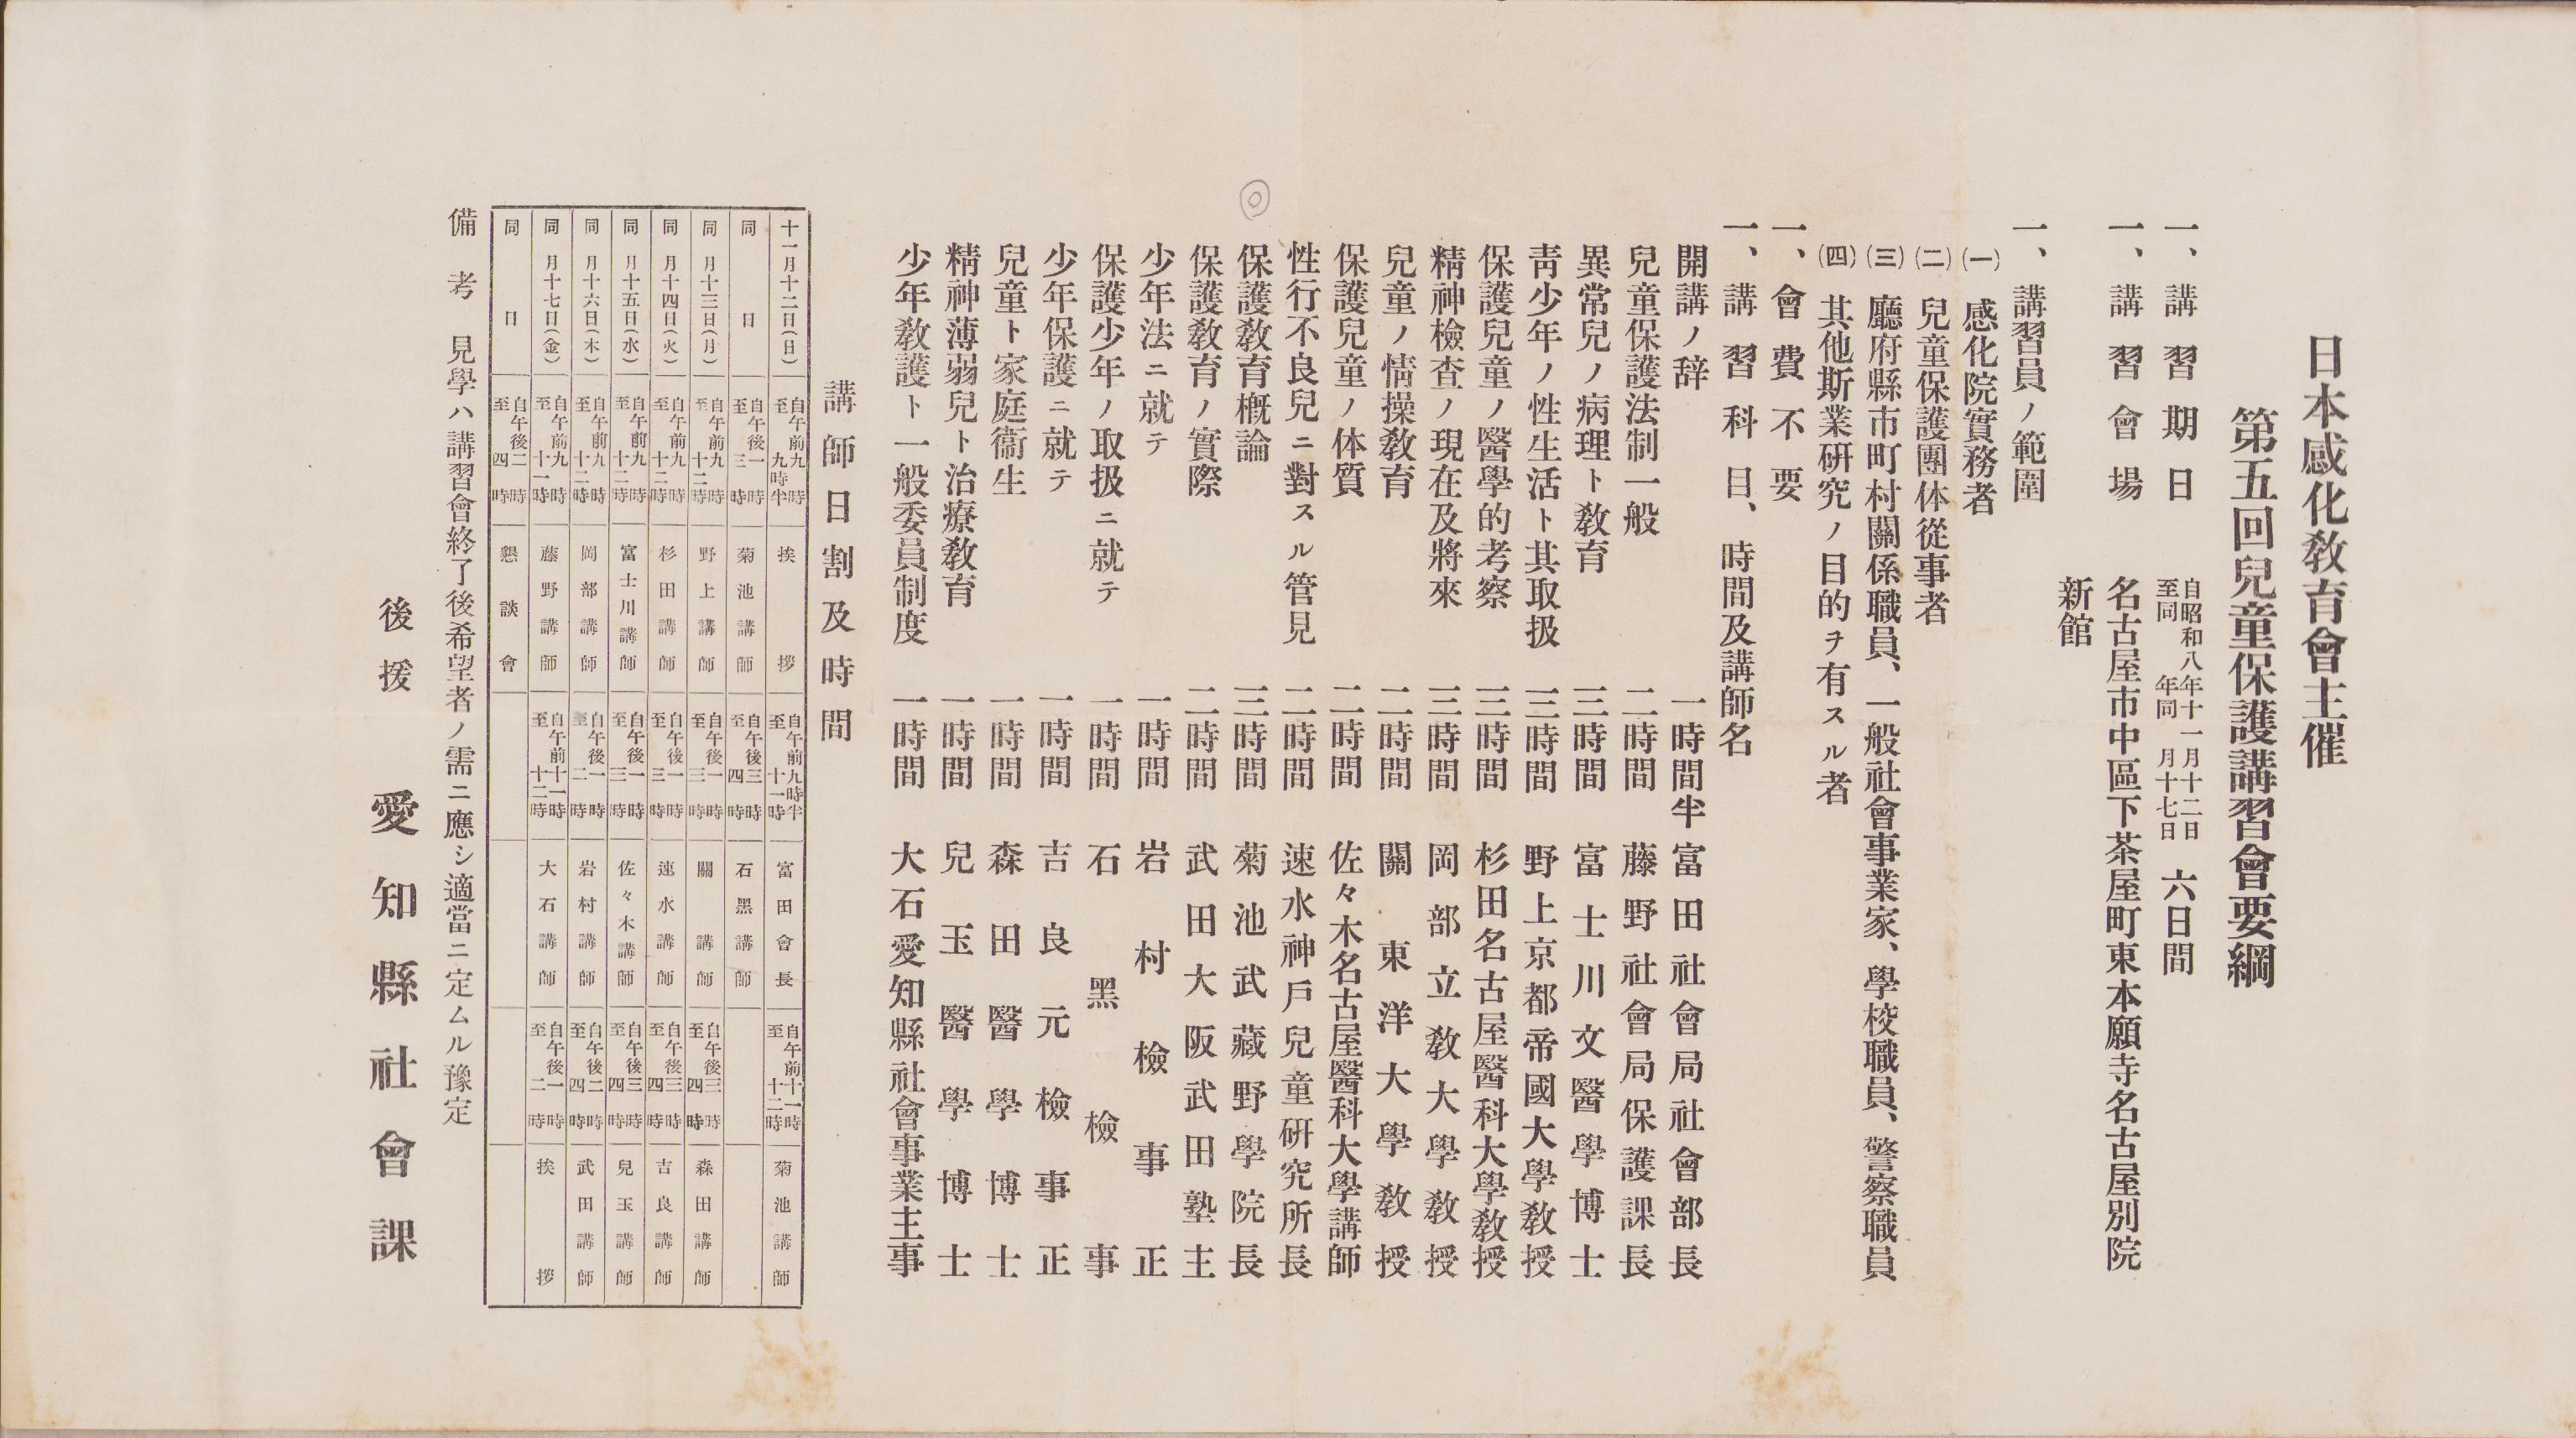 日本感化教育會主催
第五回兒童保護講習會要綱
一、講習期日 自昭和八年十一月十二日 至同年同月十七日 六日間
一、講習會場 名古屋市中區下茶屋町東本願寺名古屋別院
新館
一、講習員ノ範圍
㈠ 感化院實務者
㈡ 兒童保護團体從事者
㈢ 廳府縣市町村關係職員、一般社會事業家、學校職員、警察職員
㈣ 其他斯業研究ノ目的ヲ有スル者
一、會費不要
一、講習科目、時間及講師名
開講ノ辞 一時間半 富田社會局社會部長
兒童保護法制一般 二時間 藤野社會局保護課長
異常兒ノ病理ト教育 三時間 富士川文醫學博士
靑少年ノ性生活ト其取扱 三時間 野上京都帝國大學教授
保護兒童ノ醫學的考察 三時間 杉田名古屋醫科大學教授
精神檢査ノ現在及將來 三時間 岡部立教大學教授
兒童ノ情操教育 二時間 關東洋大學教授
保護兒童ノ体質 二時間 佐々木名古屋醫科大學講師
性行不良兒ニ對スル管見 二時間 速水神戶兒童硏究所長
保護教育槪論 三時間 菊池武藏野學院長
保護教育ノ實際 二時間 武田大阪武田塾主
少年法ニ就テ 一時間 岩村檢事正
保護少年ノ取扱ニ就テ 一時間 石黑檢事
少年保護ニ就テ 一時間 吉良元檢事正
兒童ト家庭衞生 一時間 森田醫學博士
精神薄弱兒ト治療教育 一時間 兒玉醫學博士
少年教護ト一般委員制度 一時間 大石愛知縣社會事業主事
講師日割及時間
十一月十二日(日) 自午前九時 至九時半 挨拶 自午前九時半 至十一時 富田會長 自午前十一時 至十二時 菊池講師
同日 自午後一時 至三時 菊池講師 自午後三時 至四時 石黑講師
同月十三日(月) 自午前九時 至十二時 野上講師 自午後一時 至三時 關講師 自午後三時 至四時 森田講師
同月十四日(火) 自午前九時 至十二時 杉田講師 自午後一時 至三時 速水講師 自午後三時 至四時 吉良講師
同月十五日(水) 自午前九時 至十二時 富士川講師 自午後一時 至三時 佐々木講師 自午後三時 至四時 兒玉講師
同月十六日(木) 自午前九時 至十二時 岡部講師 自午後一時 至二時 岩村講師 自午後二時 至四時 武田講師
同月十七日(金) 自午前九時 至十一時 藤野講師 自午前十一時 至十二時 大石講師 自午後一時 至二時 挨拶
同日 自午後二時 至四時 懇談會
備考 見學ハ講習會終了後希望者ノ需ニ應シ適當ニ定ムル豫定
後援 愛知縣社會課